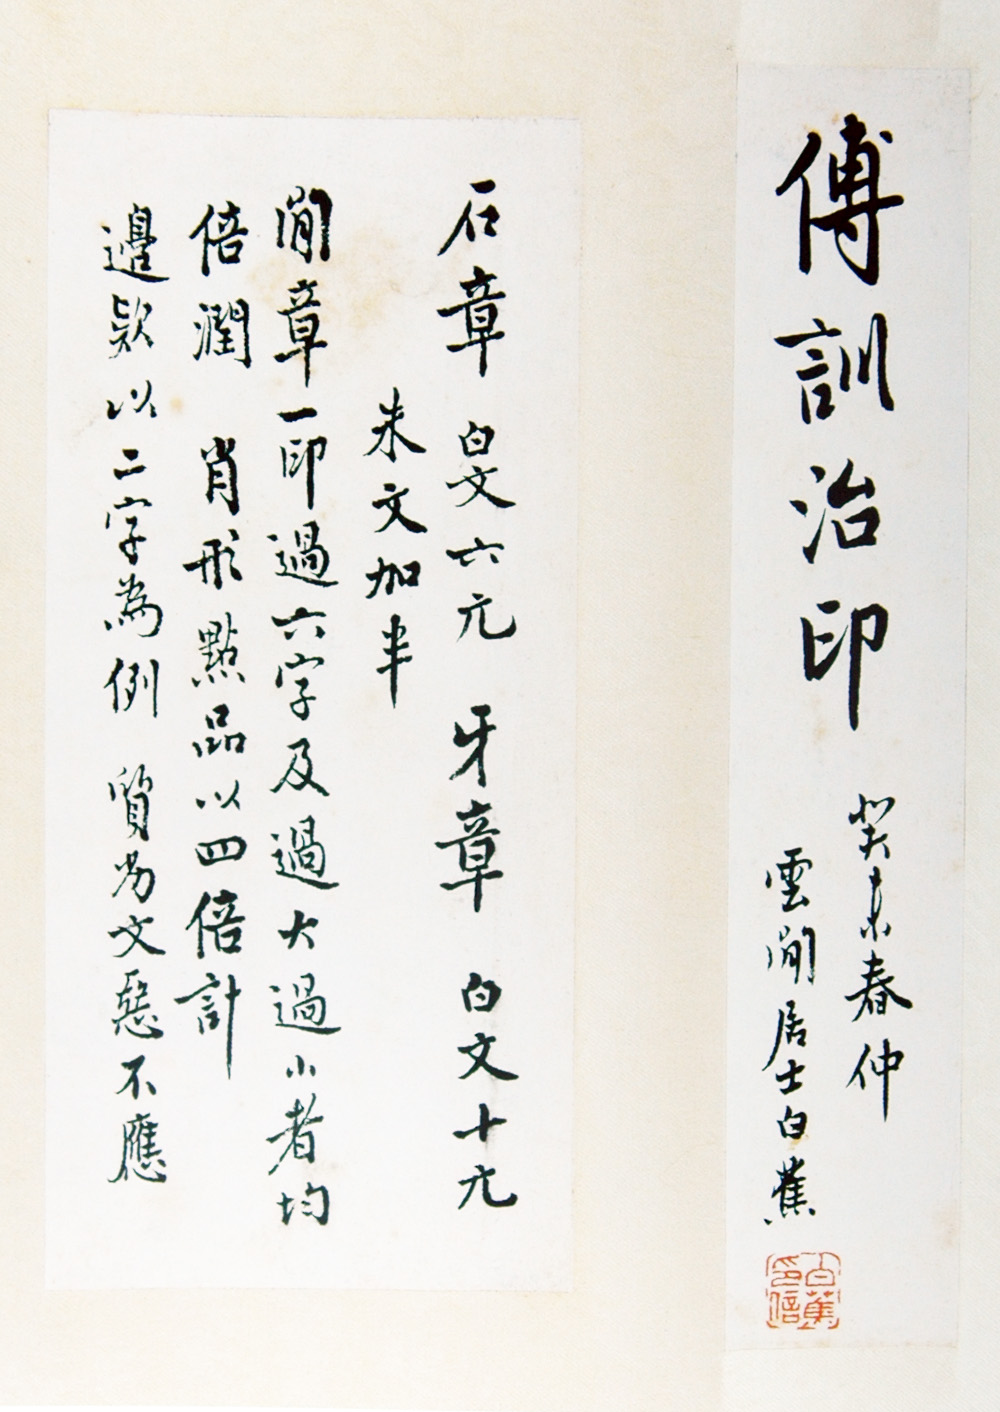 傅訓治印
癸未春仲
雲間居士白蕉
白蕉印信
石章 白文六元 牙章 白文十元
朱文加半
閒章一印過六字及過大過小者均
倍潤 肖形點品以四倍計
邊款以二字為例 質劣文惡不應